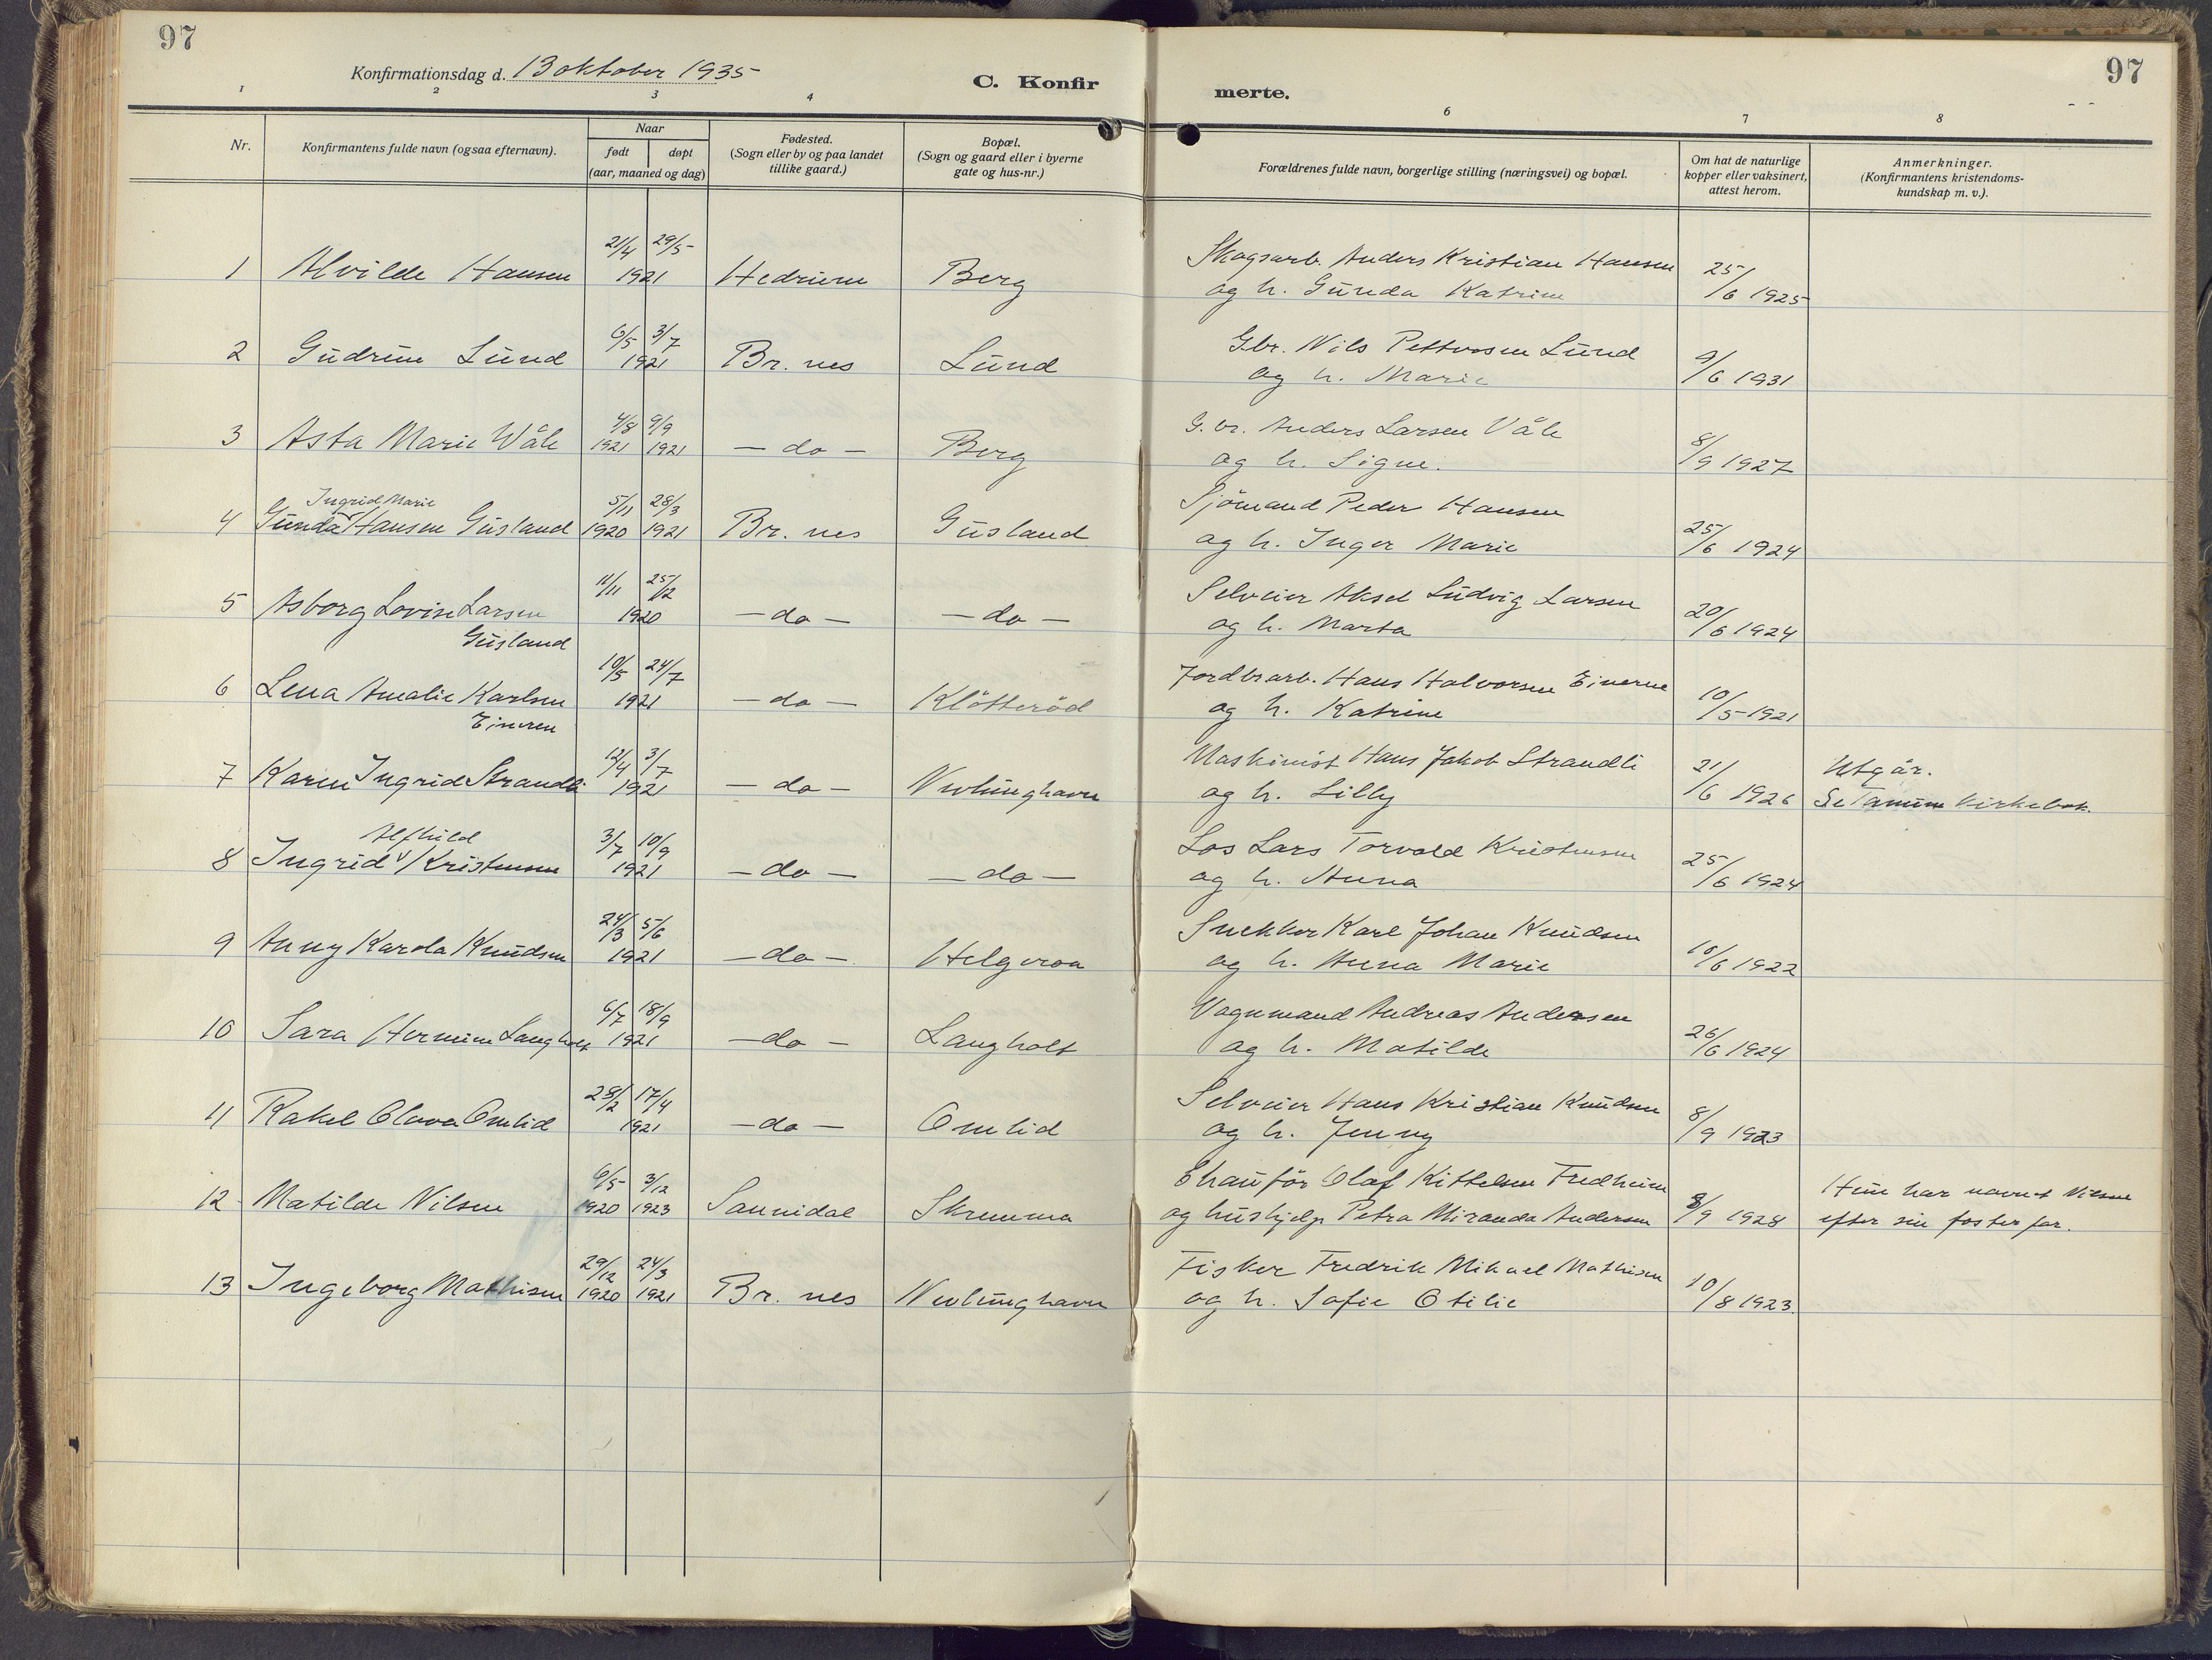 97
97
Konfirmationsdag d. 13 oktober 1935
C. Konfir
merte.
1 2 3 4 6 7 8
Nr.
Konfirmantens fulde navn (ogsaa efternavn).
Naar
født døpt
(aar, maaned og dag)
Fødested.
(Sogn eller by og paa landet
tillike gaard.)
Bopæl.
(Sogn og gaard eller i byerne
gate og hus-nr.)
Forældrenes fulde navn, borgerlige stilling (næringsvei) og bopæl.
Om hat de naturlige
kopper eller vaksinert,
attest herom.
Anmerkninger.
(Konfirmantens kristendoms-
kundskap m. v.).
21/4 29/5
1 Alvilde Hansen 1921 Hedrum Berg
Skogsarb. Anders Kristian Hansen
og h. Gunda Katrine 25/6 1925
6/5 3/7
2 Gudrun Lund 1921 Br. nes Lund
Gbr. Nils Pettersen Lund
og h. Marie 9/6 1931
4/8 9/9
3 Asta Marie Wåle 1921 1921 — do — Berg
G. br. Anders Larsen Våle
og h. Signe. 8/9 1927
Ingrid Marie 5/11 28/3
4 Gunda Hansen Gusland 1920 1921 Br. nes Gusland
Sjömand Peder Hansen
og h. Inger Marie 25/6 1924
11/11 25/12
5 Asborg Lovise Larsen 1920 — do — — do —
Gusland
Selveier Aksel Ludvig Larsen
og h. Marta 20/6 1924
10/5 24/7
6 Lena Amalie Karlsen 1921 — do — Klötteröd
Eineren
Jordbrarb. Hans Halvorsen Einerne
og h. Katrine 10/5 1921
12/4 3/7
7 Karin Ingrid Strandli 1921 — do — Nevlunghavn
Maskinist Hans Jakob Strandli
og h. Lilly 21/6 1926
Utgår.
Se Tanum kirkebok.
Alfhild 3/7 10/9
8 Ingrid Kristensen 1921 — do — — do —
Los Lars Torvald Kristensen
og h. Anna 25/6 1924
24/3 5/6
9 Anny Karola Knudsen 1921 — do — Helgeroa
Snekker Karl Johan Knudsen
og h. Anna Marie 10/6 1922
6/7 18/9
10 Sara Hermine Langholt 1921 — do — Langholt
Vognmand Andreas Andersen
og h. Matilde 26/6 1924
28/2 17/4
11 Rakel Olava Omlid 1921 — do — Omlid
Selveier Hans Kristian Knudsen
og h. Jenny 8/9 1923
6/5 3/12
12 Matilde Nilsen 1920 1923 Sannidal Skremma
Chauför Olaf Kittelsen Fredheim
og hushjelp Petra Miranda Andersen 8/9 1928
Hun har navnet Nilsen
efter sin fosterfar.
29/12 24/3
13 Ingeborg Mathisen 1920 1921 Br. nes Nevlunghavn
Fisker Fredrik Mikael Mathisen
og h. Sofie Otilie 10/8 1923.